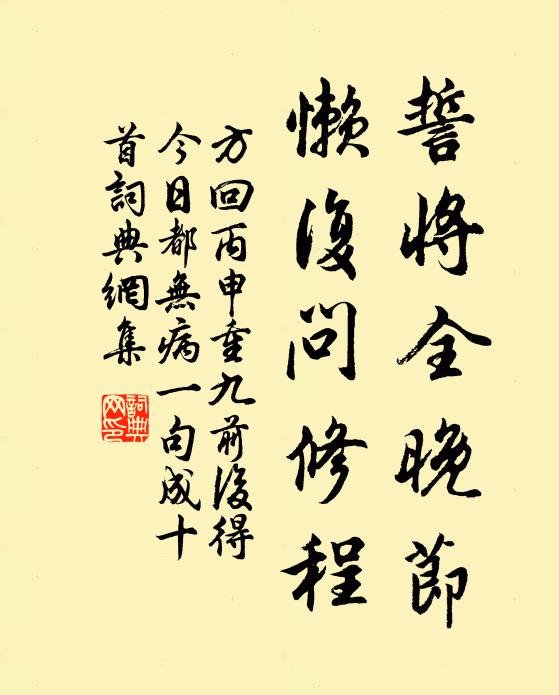 誓將全晚節
懶復問修程
方回丙申重九前後得
今日都無病一句成十
首詞典網集
詞典
网印